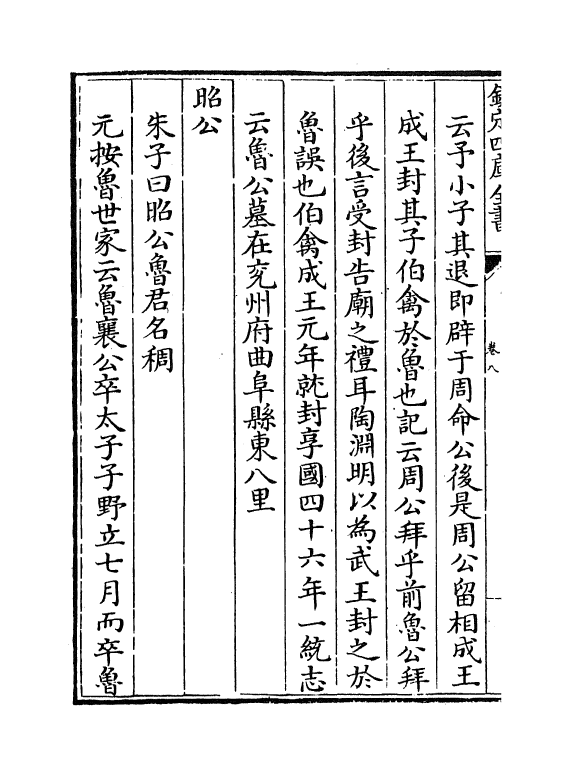 欽定四庫全書
卷八
云予小子其退即辟于周命公後是周公留相成王
成王封其子伯禽於魯也記云周公拜乎前魯公拜
乎後言受封告廟之禮耳陶淵明以為武王封之於
魯誤也伯禽成王元年就封享國四十六年一統志
云魯公墓在兖州府曲阜縣東八里
昭公
朱子曰昭公魯君名稠
元按魯世家云魯襄公卒太子子野立七月而卒魯